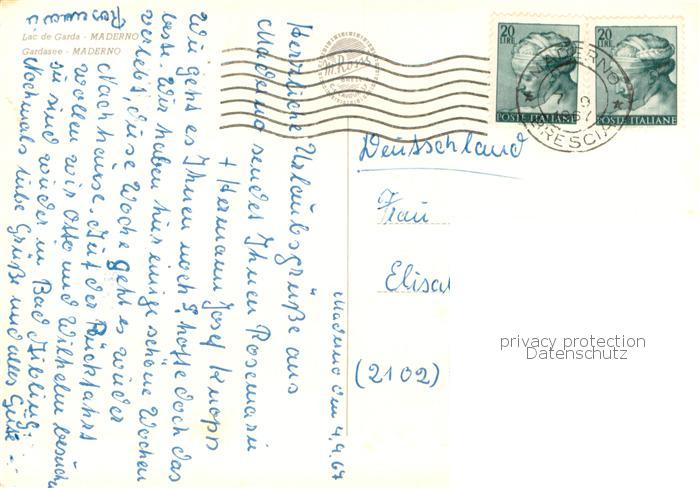 Lac de Garda - MADERNO
Gardasee - MADERNO
20
LIRE
20
LIRE
POSTE ITALIANE
POSTE ITALIANE
MADERNO
BRESCIA
Deutschland
Frau
Elisa
(2102)
Maderno den 4.9.67
Herzliche Urlaubsgrüße aus
Maderno sendet Ihnen Rosemarie
+ Hermann Josef Knopp
Wie geht es Ihnen noch?, hoffe doch das
beste. Wir haben hier einige schöne Wochen
verlebt, diese Woche geht es wieder
Nachhause. Auf der Rückfahrt
wollen wir Otto und Wilhelm besuchen
sie sind wieder in Bad Aibling.
Nochmals liebe Grüße und alles Gute
privacy protection
Datenschutz